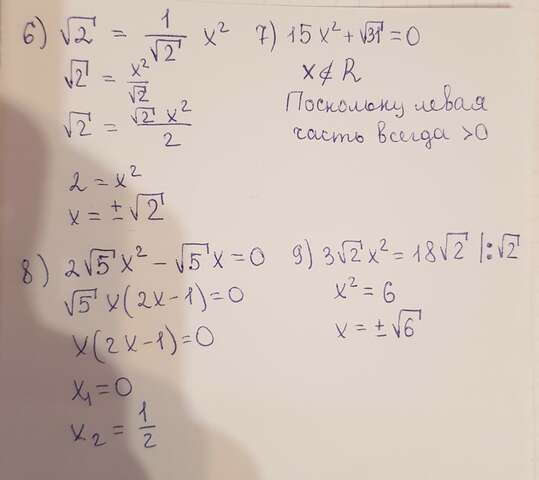 6) √2 = 1/√2 x²
√2 = x²/√2
√2 = √2 x²/2
2 = x²
x = ±√2
7) 15x² + √31 = 0
x∉R
Поскольку левая
часть всегда >0
8) 2√5 x² − √5 x = 0
√5 x(2x−1)=0
x(2x−1)=0
x₁=0
x₂ = 1/2
9) 3√2 x² = 18√2 |:√2
x² = 6
x = ±√6